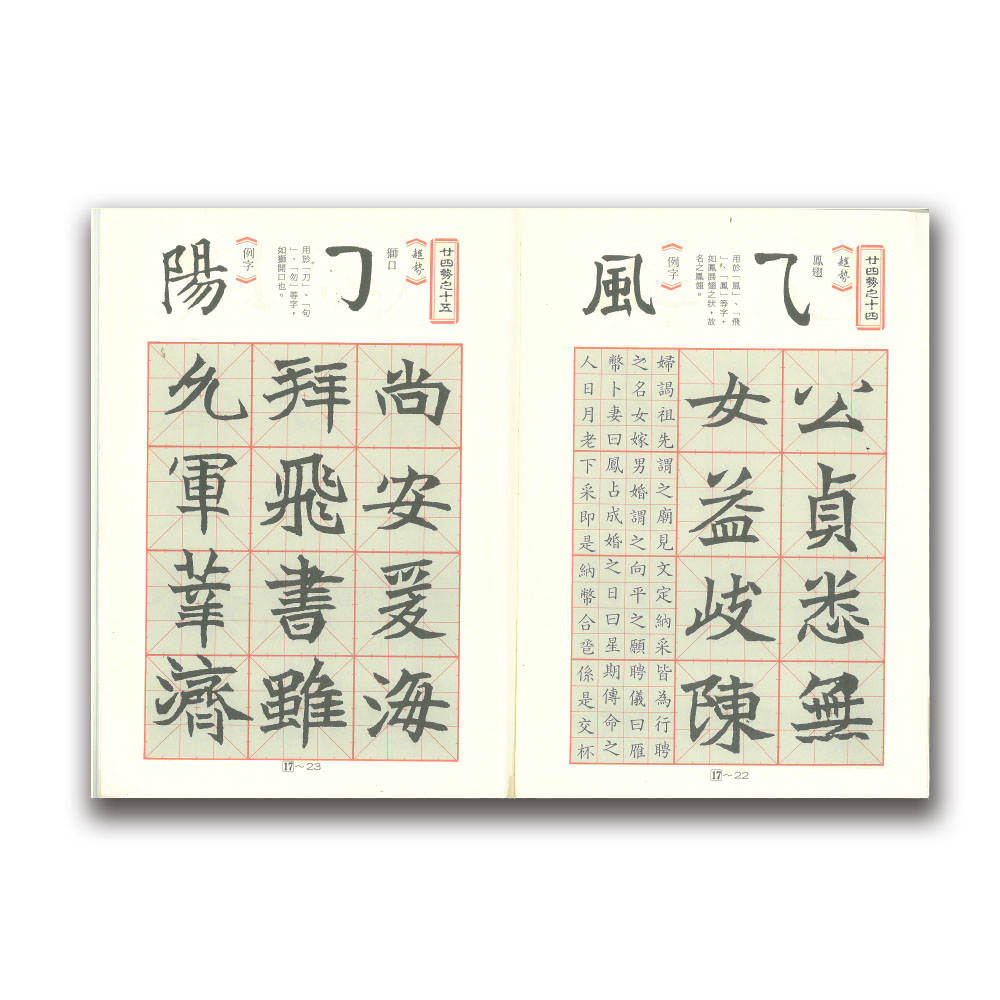 廿四勢之十四
《趯勢》
鳳翅
用於「風」、「飛
」、「鳳」等字,
如鳳展翅之狀,故
名之鳳翅。
《例字》
風
公貞悉無
女益歧陳
婦謁祖先謂之廟見文定納采皆為行聘
之名女嫁男婚謂之向平之願聘儀曰雁
幣卜妻曰鳳占成婚之日曰星期傳命之
人日月老下采即是納幣合卺係是交杯
17~22
廿四勢之十五
《趯勢》
獅口
用於「刀」、「句
」、「勿」等字,
如獅開口也。
《例字》
陽
尚安爰海
拜飛書雖
允軍華濟
17~23